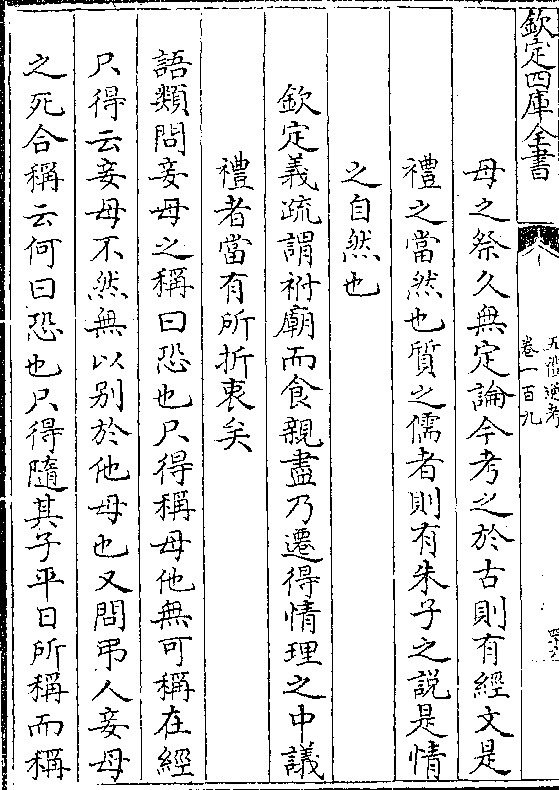 欽定四庫全書
五禮通考
卷一百九
母之祭久無定論今考之於古則有經文是
禮之當然也質之儒者則有朱子之説是情
之自然也
欽定義疏謂祔廟而食親盡乃遷得情理之中議
禮者當有所折衷矣
語類問妾母之稱曰恐也只得稱母他無可稱在經
只得云妾母不然無以别於他母也又問弔人妾母
之死合稱云何曰恐也只得隨其子平日所稱而稱